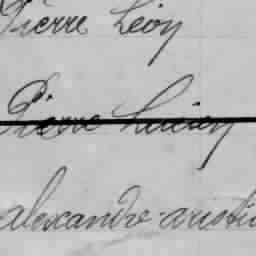 Pierre Léon
Pierre Lucien
alexandre aristi